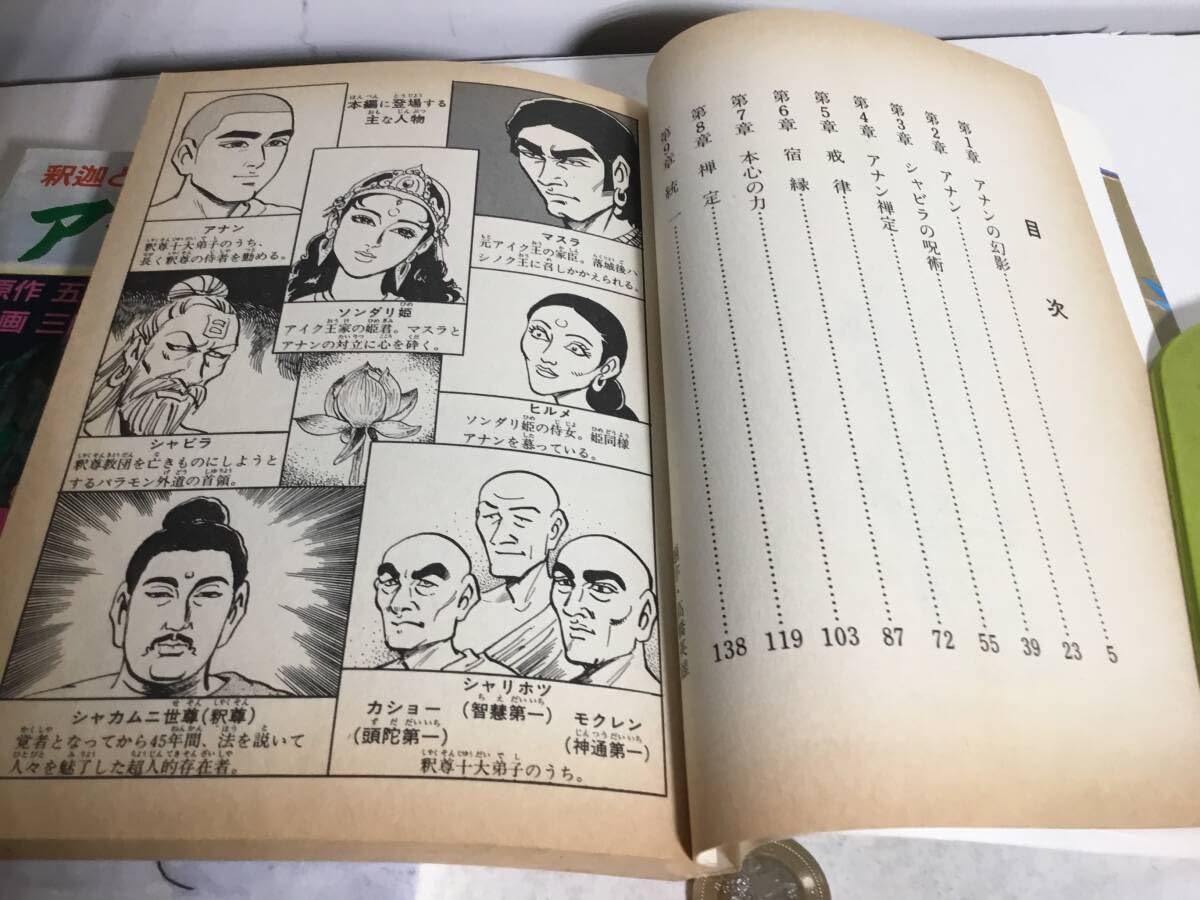 本編に登場する
主な人物
アナン
釈尊十大弟子のうち、
長く釈尊の侍者を勤める。
マスラ
元アイク王の家臣。落城後ハ
シノク王に召しかかえられる。
ソンダリ姫
アイク王家の姫君。マスラと
アナンの対立に心を砕く。
シャビラ
釈尊教団を亡きものにしようと
するバラモン外道の首領。
ヒルメ
ソンダリ姫の侍女。姫同様
アナンを慕っている。
シャカムニ世尊(釈尊)
覚者となってから45年間、法を説いて
人々を魅了した超人的存在者。
カショー
(頭陀第一)
シャリホツ
(智慧第一)
モクレン
(神通第一)
釈尊十大弟子のうち。
目次
第1章 アナンの幻影 5
第2章 アナン 23
第3章 シャビラの呪術 39
第4章 アナン禅定 55
第5章 戒律 72
第6章 宿縁 87
第7章 本心の力 103
第8章 禅定 119
第9章 統一 138
釈迦と
ア
原作 五
画 三